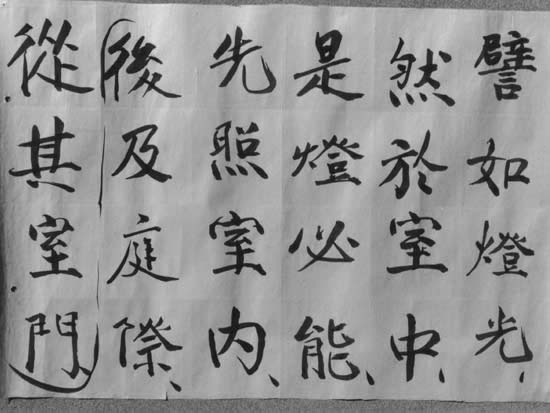 譬如燈光、
然於室中、
是燈必能、
先照室内、
後及庭際、
從其室門、